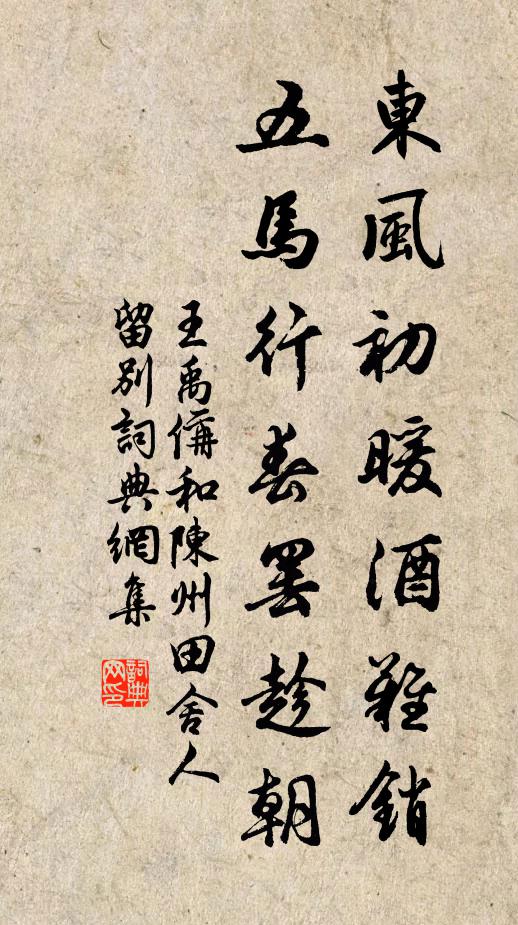 東風初暖酒難銷
五馬行春罷趁朝
王禹偁和陳州田舍人
留別詞典網集
詞典網印